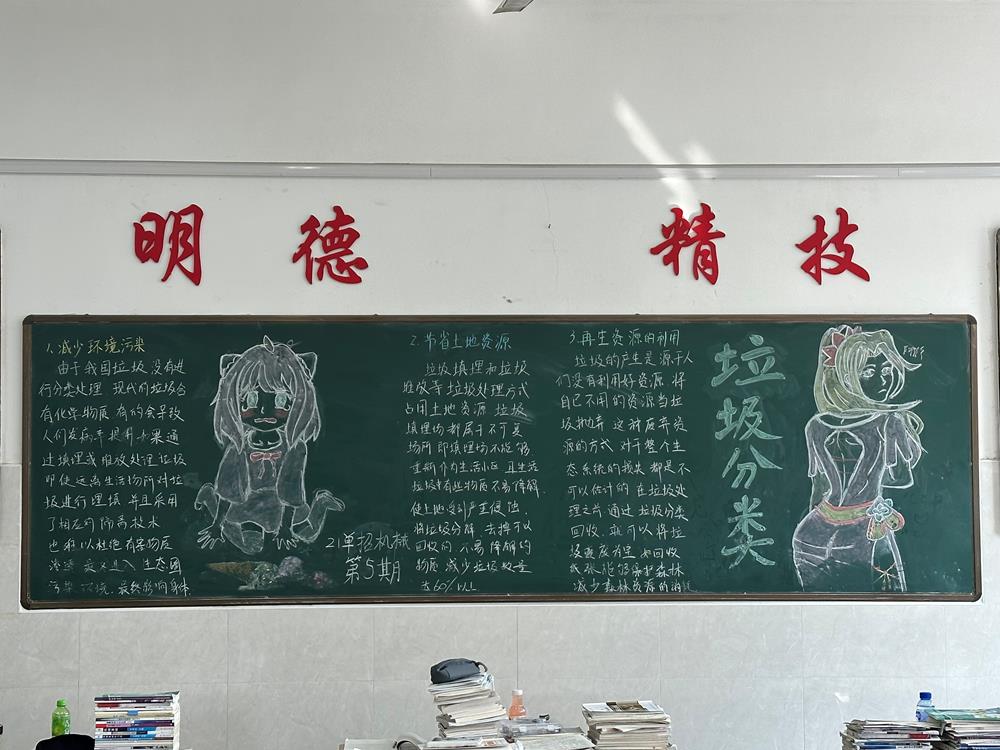 明德 精技
1.减少环境污染
由于我国垃圾没有进
行分类处理 现代的垃圾含
有化学物质 有的会导致
人们发病率提升如果通
过填埋或堆放处理垃圾
即使远离生活场所对垃
圾进行埋填 并且采用
了相应的隔离技术
也难以杜绝有害物质
渗透
进入生态圈
污染
最终影响身体
21单招机械
第5期
2.节省土地资源
垃圾填埋和垃圾
堆放等垃圾处理方式
占用土地资源 垃圾
填埋场都属于不可复
场所 即填埋场不能够
重新作为生活小区 且生活
垃圾中有些物质不易降解
使土地受到严重侵蚀
将垃圾分解 去掉可以
回收的 不易降解的
物质 减少垃圾数量
达60%以上
3.再生资源的利用
垃圾的产生是源于人
们没有利用好资源 将
自己不用的资源当垃
圾抛弃 这种废弃资
源的方式 对于整个生
态系统的损失都是不
可以估计的 在垃圾处
理之前 通过垃圾分类
回收 就可以将垃
圾变废为宝 如回收
纸张能够保护森林
减少森林资源的消耗
垃圾分类